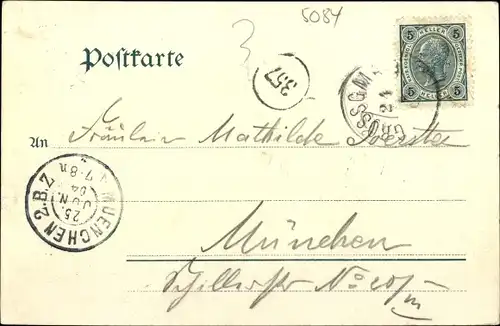 5084
Postkarte
3
357
5 5
HELLER
5 HELLER 5
GROSSGMA
24
An Fräulein Mathilde
MUENCHEN 2.B.Z
7-8N
25.
JUN.
04
München
Schillerstr No